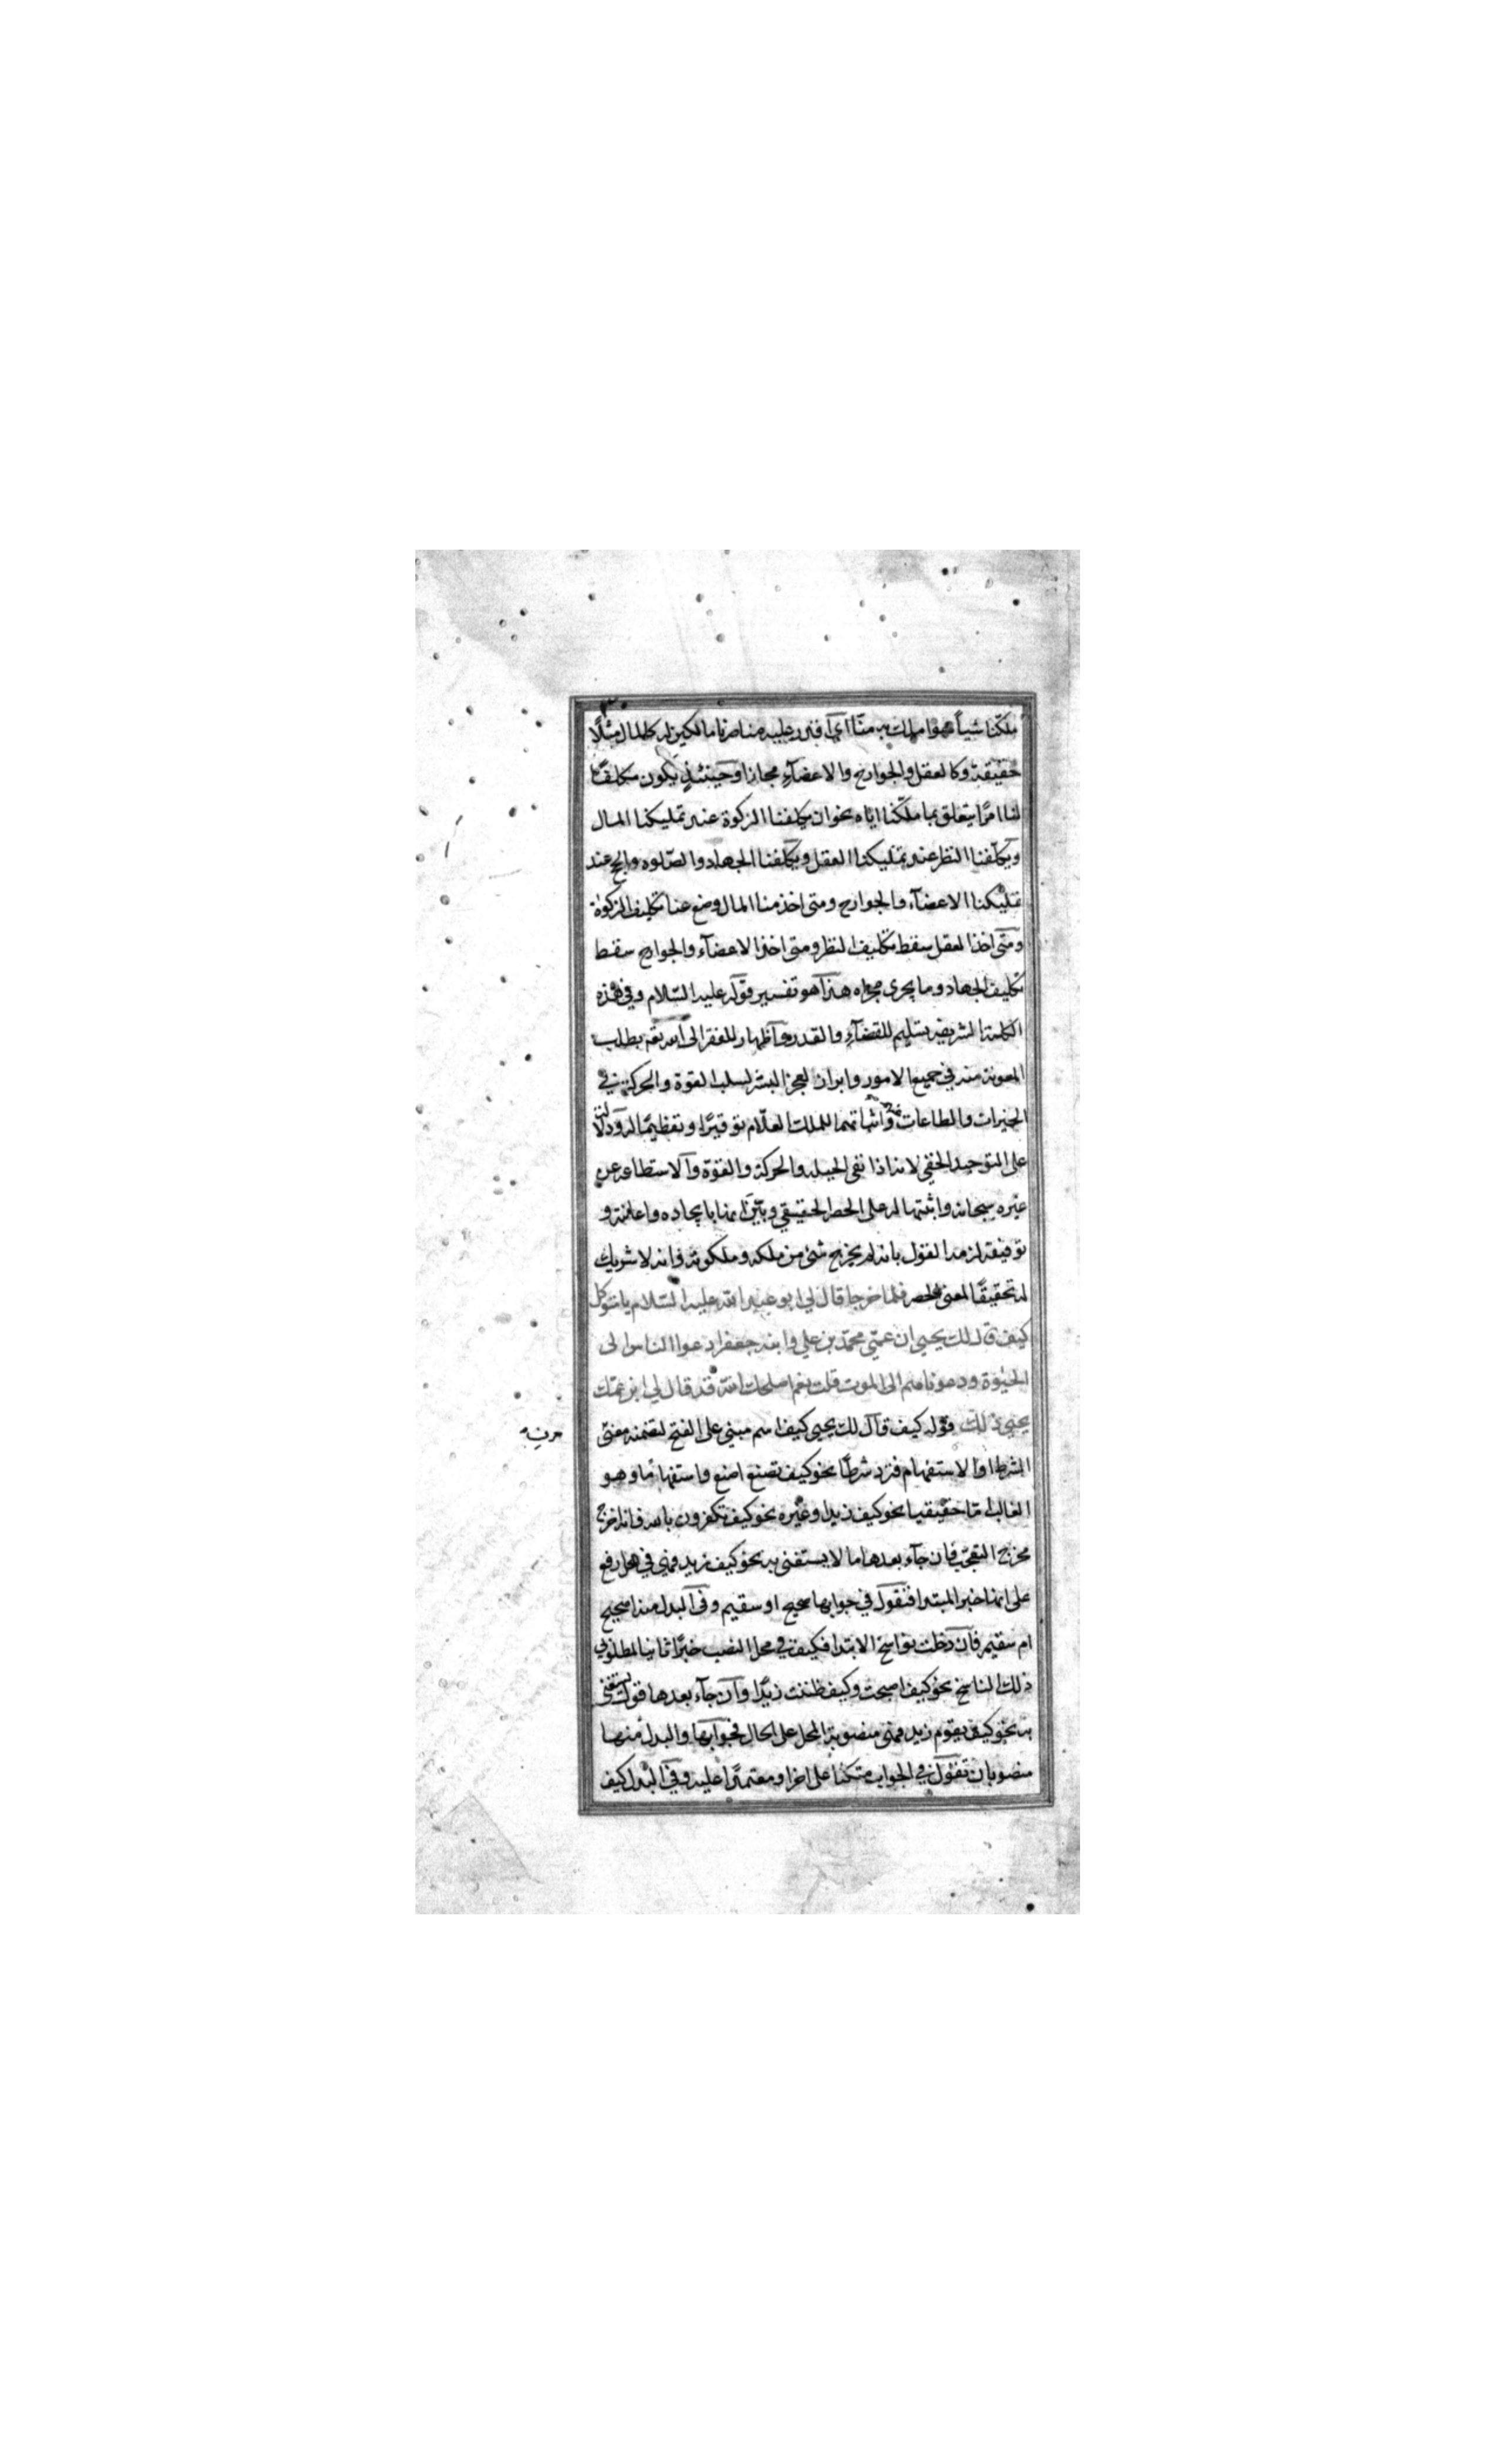 ٣٠
ملكنا شيأ هو املك به منا اى اقدر عليه منا صرنا مالكين له كالمال مثلًا
حقيقة وكالعقل والجوارح والاعضآء مجازا وحينئذٍ يكون مكلفًا
لنا امرًا يتعلق بما ملّكنا اياه نحو ان يكلفنا الزكوة عند تمليكنا المال
ويكلّفنا النظر عند تمليكنا العقل ويكلفنا الجهاد والصّلوه والحج عند
تمليكنا الاعضآء والجوارح ومتى اخذ منا المال وضع عنا تكليف الزكوة
ومتى اخذ العقل سقط تكليف النظر ومتى اخذ الاعضآء والجوارح سقط
تكليف الجهاد وما يجرى مجراه هذا هو تفسير قوله عليه السّلام وفى هذه
الكلمة الشريفة تسليم للقضآء والقدر واظهار للفقر الى الله تعه بطلب
المعونة منه في جميع الامور وابراز لعجز البشر لسلب القوة والحركة في
الخيرات والطاعات واثباتهما للملك العلّام توقيرًا وتعظيمًا له ودلالته
على التوحيد الخفي لانه اذا نفى الحيله والحركة والقوّة والاستطاعه عن
غيره سبحانه واثبتها له على الحصر الحقيقي وبيّن انها بايجاده واعانته و
توفيقه لزمه القول بانه لم يخرج شئ من ملكه وملكوته وانه لا شريك
له تحقيقًا لمعنى الحصر فلما خرجا قال لي ابو عبد الله عليه السّلام يا متوكل
كيف قال لك يحيى ان عمّي محمّد بن علي وابنه جعفرا دعوا الناس الى
الحيٰوة ودعوناهم الى الموت قلت نعم اصلحك الله قد قال لي ابن عمّك
يحيى ذلك قوله كيف قال لك يحيى كيف اسم مبني على الفتح لتضمنه معنى
الشرط او الاستفهام فترد شرطًا نحو كيف تصنع اصنع واستفهامًا وهو
الغالب امّا حقيقيا نحو كيف زيد او غيره نحو كيف تكفرون بالله فانه اخرج
مخرج التعجّب فان جآء بعدها ما لا يستغنى به نحو كيف زيد فهي في محل رفع
على انها خبر المبتدا فتقول في جوابها صحيح او سقيم وفى البدل منها صحيح
ام سقيم فان دخلت نواسخ الابتدا فكيف في محل النصب خبرًا ثانيا لمطلوبي
ذلك الناسخ نحو كيف اصبحت وكيف ظننت زيدًا وان جآء بعدها قول يستغنى
به نحو كيف يقوم زيد فهى منصوبة المحل على الحال فجوابها والبدل منها
منصوبان تقول في الجواب متكئا على اخر او معتمدًا عليه وفي البدل كيف